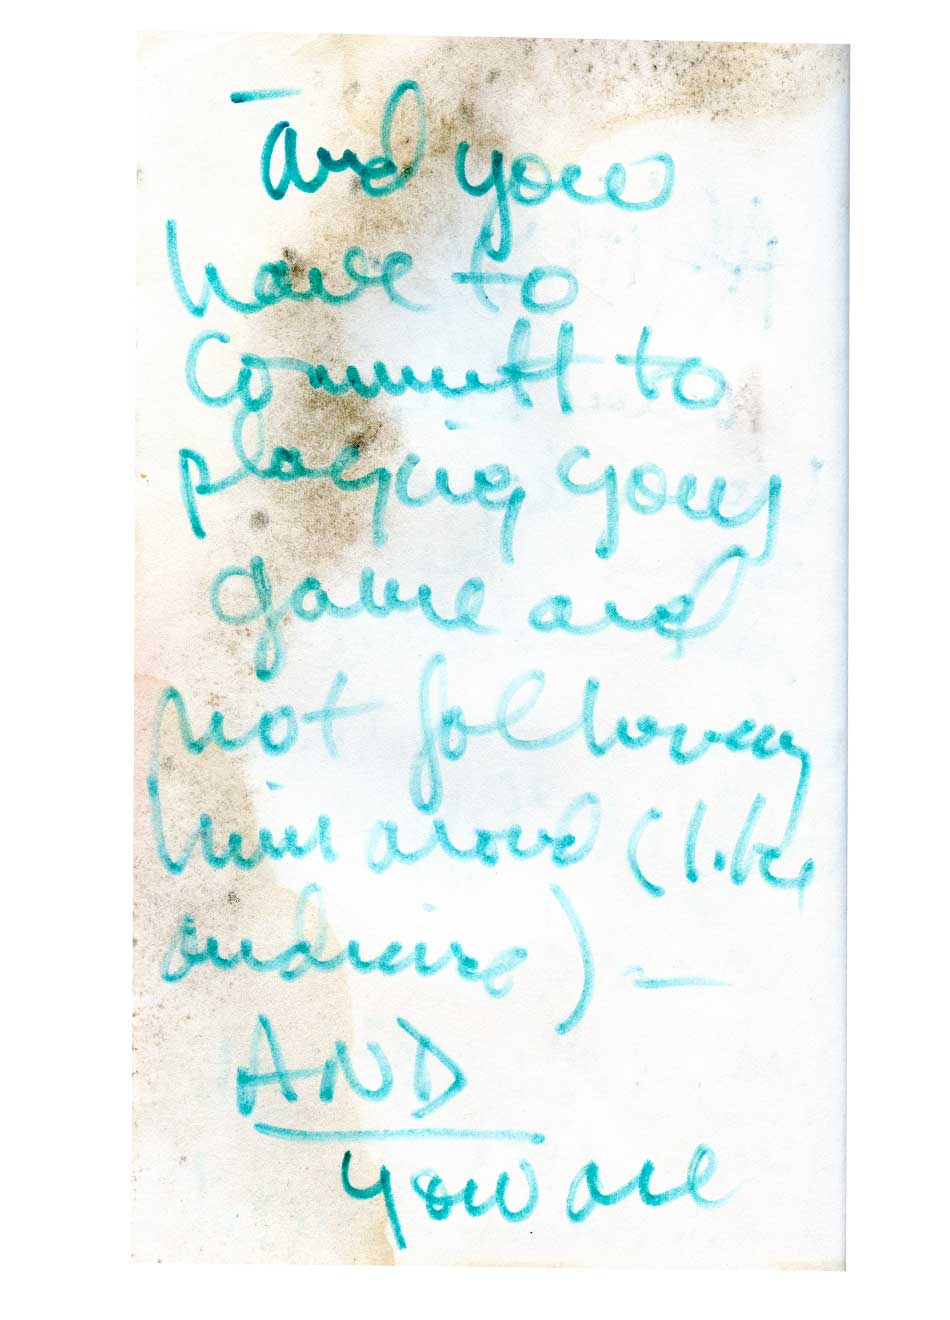 – and you
have to
Committ to
playing your
game and
not following
him around (like
) —
AND
you are